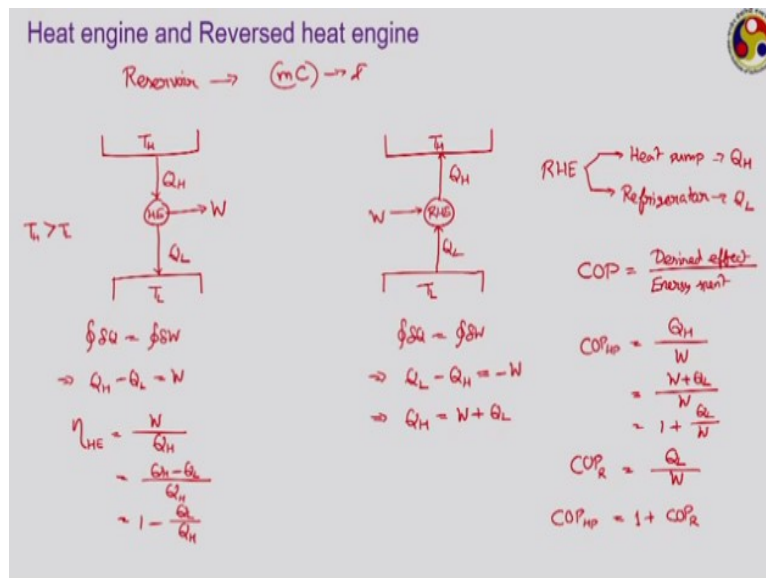 Heat engine and Reversed heat engine
Reservoir → (mC) → ∞
T_H
Q_H
HE → W
T_H > T_L
Q_L
T_L
∮δQ = ∮δW
⇒ Q_H - Q_L = W
η_HE = W / Q_H
= Q_H - Q_L / Q_H
= 1 - Q_L / Q_H
T_H
Q_H
W → RHE
Q_L
T_L
∮δQ = ∮δW
⇒ Q_L - Q_H = -W
⇒ Q_H = W + Q_L
RHE
→ Heat pump → Q_H
→ Refrigerator → Q_L
COP = Desired effect / Energy spent
COP_HP = Q_H / W
= W + Q_L / W
= 1 + Q_L / W
COP_R = Q_L / W
COP_HP = 1 + COP_R